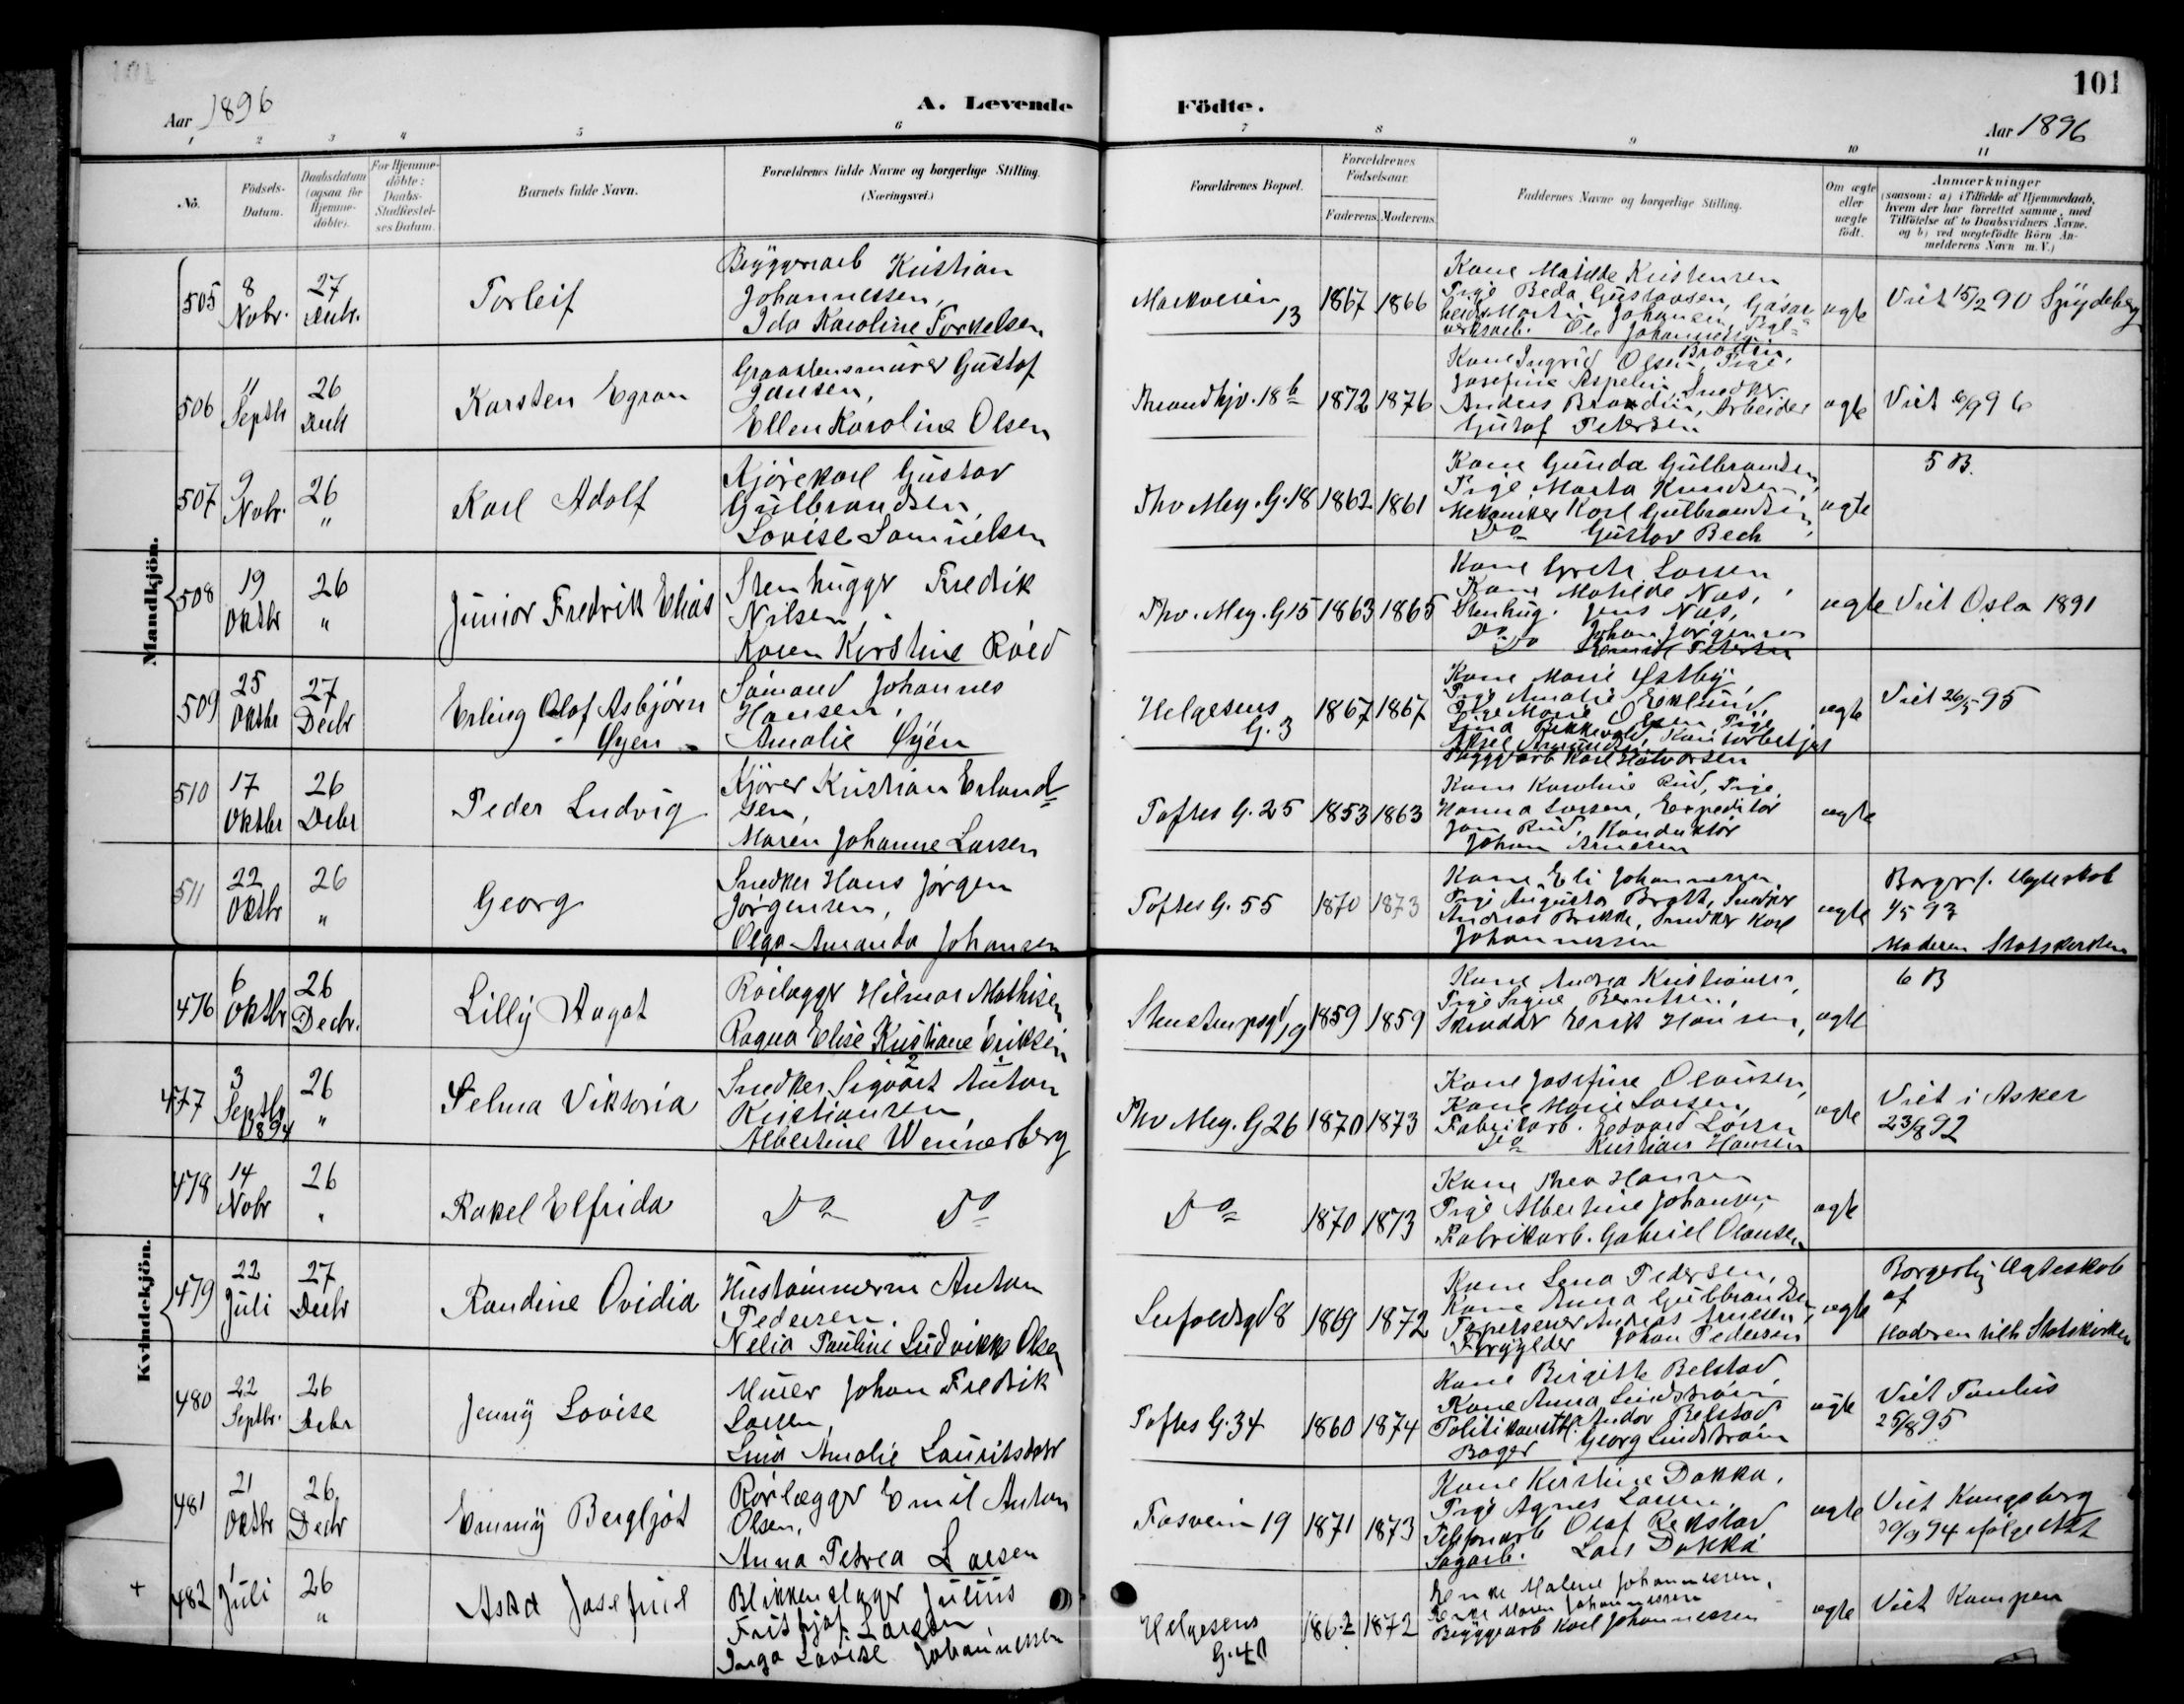 101
Aar 1896
A. Levende
Födte.
Aar 1896
1 2 3 4 5 6 7 8 9 10 11
No.
Födsels-Datum.
Daabsdatum (ogsaa for Hjemme-döbte).
For Hjemme-döbte: Daabs-Stadfæstel-ses Datum.
Barnets fulde Navn.
Forældrenes fulde Navne og borgerlige Stilling.
(Næringsvei.)
Forældrenes Bopæl.
Forældrenes Födselsaar.
Faderens. Moderens.
Faddernes Navne og borgerlige Stilling.
Om ægte eller uægte födt.
Anmærkninger
(saasom: a) i Tilfælde af Hjemmedaab, hvem der har forrettet samme, med Tilföielse af to Daabsvidners Navne. og b) ved uægtefödte Börn An-melderens Navn m. V.)
Mandkjön.
505 8 Nobr. 27 Decbr. Torleif
Bryggeriarb Kristian
Johannessen,
Ida Karoline Torkelsen
Markveien 13 1867 1866
Kone Matilde Kristensen
Pige Beda Gustavsen, Gasar
beider Martin Johansen,
verksarb. Ole Johannesen
ægte Viet 15/2 90 Spydeberg
506 11 Septbr 26 Decbr Karsten Egron
Graastensmurer Gustaf
Jansen,
Ellen Karoline Olsen
Throndhjv. 18 b 1872 1876
Kone Ingrid Olsen, Pige
Josefine Aspelin, Snedker
Anders Brodin, Arbeider
Gustaf Petersen
ægte Viet 6/9 96
507 9 Nobr. 26 " Karl Adolf
Kjörekarl Gustav
Gulbrandsen,
Lovise Samuelsen
Thv Mey. G. 18 1862 1861
Kone Gunda Gulbrandsen,
Pige Marta Knudsen,
Mekaniker Karl Gulbrandsen,
Do Gustav Bech
ægte 5 B.
508 19 Oktbr 26 " Junior Fredrik Elias
Stenhugger Fredrik
Nilsen,
Karen Kirstine Röed
Thv. Mey. G 15 1863 1865
Kone Grete Larsen
Kone Matilde Næs,
Stenhug. Jens Næs,
Do Johan Jörgensen
Do Petersen
ægte Viet Oslo 1891
509 25 Oktbr 27 Decbr Erling Olaf Asbjörn
Øyen
Sömand Johannes
Hansen,
Amalie Øyen
Helgesens G. 3 1867 1867
Kone Marie Østby,
Pige Amalie Eklund,
Pige Marie Olsen, Pige
Aksel Amundsen, Kontorbetjent
Byggearb Karl Halvorsen
ægte Viet 26/5 95
510 17 Oktbr 26 Decbr Peder Ludvig
Kjörer Kristian Erland=
sen,
Maren Johanne Larsen
Toftes G. 25 1853 1863
Kone Karoline Rud, Pige
Hanna Larsen, Expeditör
Jon Rud, Konduktör
Johan Arnesen
ægte
511 22 Oktbr 26 " Georg
Snedker Hans Jörgen
Jörgensen,
Olga Amanda Johansen
Toftes G. 55 1870 1873
Kone Eli Johannesen
Pige Augusta Bratt, Snedker
Andreas Brekke, Snedker Karl
Johannessen
ægte
Borgerl. Ægteskab
4/5 93
Moderen Statskirken
Kvindekjön.
476 6 Oktbr 26 Decbr. Lilly Aagot
Rörlægger Hilmar Mathisen
Ragna Elise Kristiane Eriksen
Stenstrupsgd 19 1859 1859
Kone Andrea Kristiansen,
Pige Signe Berntsen,
Skrædder Erik Hansen,
ægte 6 B
477 3 Septbr 1894 26 " Selma Viktoria
Snedker Sigvart Anton
Kristiansen,
Albertine Wennerberg
Thv Mey. G 26 1870 1873
Kone Josefine Olausen,
Kone Marie Larsen,
Fabrikarb. Edvard Larsen
Do Kristian Hansen
ægte Viet i Asker
23/8 92
478 14 Nobr 26 " Rakel Elfrida
Do Do
Do 1870 1873
Kone Thea Hansen
Pige Albertine Johansen,
Fabrikarb. Gabriel Olausen
ægte
479 22 Juli 27 Decbr Randine Ovidia
Hustömmerm Anton
Pedersen,
Nelia Pauline Ludvikke Olsen
Seifoldsgd 8 1869 1872
Kone Lena Pedersen,
Kone Anna Gulbrandsen
Tapetserer Andreas Arnesen,
Forgylder Johan Pedersen
ægte
Borgerlig Ægteskab
af
Moderen tilh Statskirken
480 22 Septbr. 26 Decbr Jenny Lovise
Murer Johan Fredrik
Larsen,
Lina Amalie Lauritsdatr
Toftes G. 34 1860 1874
Kone Birgitte Belstad,
Kone Anna Lindström
Politikonst. Andor Belstad
Bager Georg Lindström
ægte Viet Paulus
25/8 95
481 21 Oktbr 26. Decbr Emmy Bergljot
Rörlægger Emil Anton
Olsen,
Anna Petrea Larsen
Fosvein 19 1871 1873
Kone Kirstine Dokka,
Pige Agnes Larsen,
Telefonarb Olaf Rekstad
Sagarb. Lars Dokka
ægte Viet Kongsberg
30/9 94 ifølge Att
+ 482 1 Juli 26 " Asta Josefine
Blikkenslager Julius
Frithjof Larsen
Inga Lovise Johannessen
Helgesens G. 40 1862 1872
Enke Malene Johannessen,
Enke Maren Johannessen
Bryggearb Karl Johannessen
ægte Viet Kampen